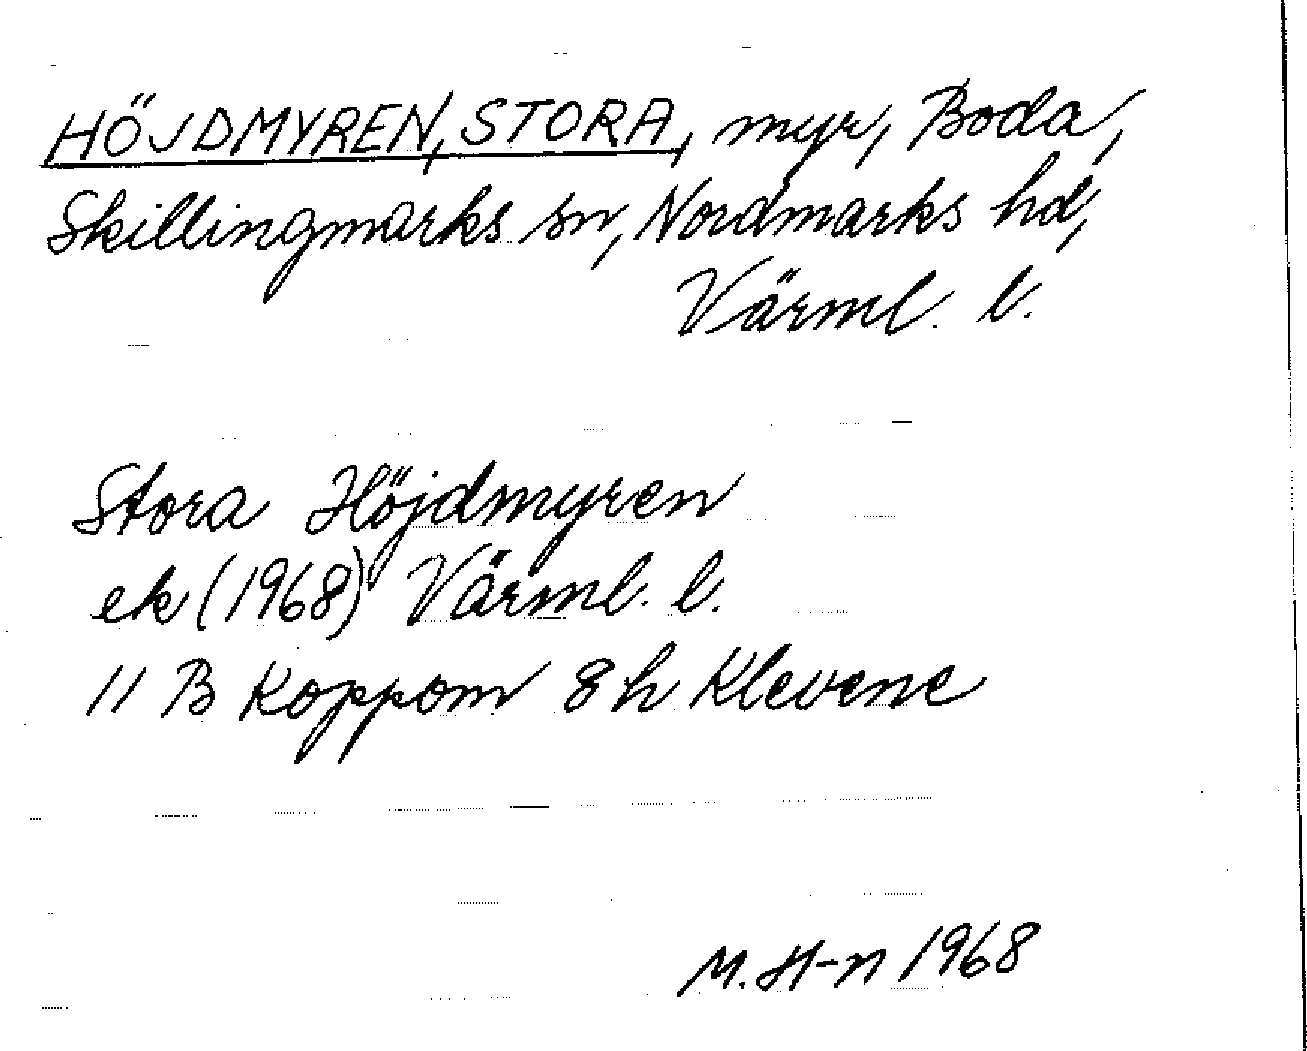 HÖJDMYREN, STORA, myr, Boda,
Skillingmarks sn, Nordmarks hd,
Värml. l.
Stora Höjdmyren
ek (1968) Värml. l.
11 B Koppom 8h Klevene
M. H-n 1968